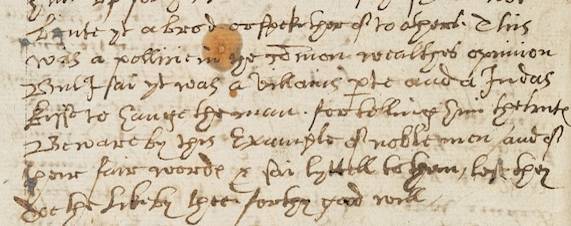 brute yt abrod or speke therof to others. This
was a pollicie in ye comon wealthes opinion
But I sai yt was a villains pte and a Judas
kisse to hange the man. for telling him the trute
Beware by this Example of noble men, and of
their fair wordes & sai lyttell to them, lest they
doe the like by thee for thy good will